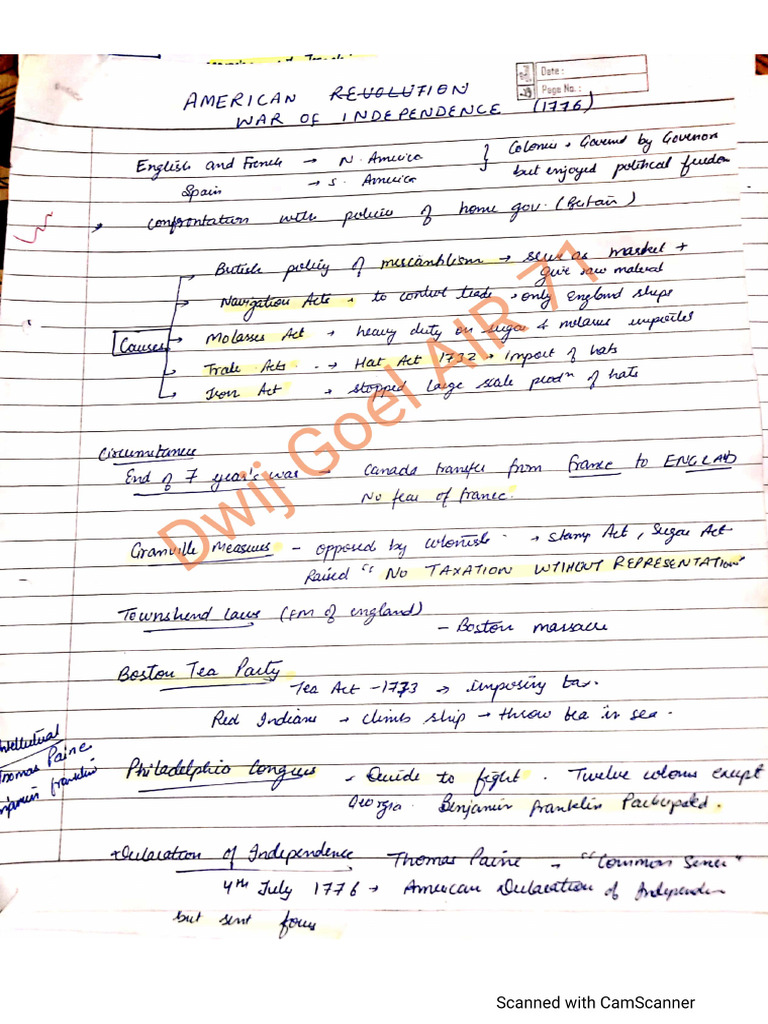 Date :
Page No. :
AMERICAN REVOLUTION
WAR OF INDEPENDENCE (1776)
English and French → N. America } Colonies → Governed by Governor
Spain → S. America but enjoyed political freedom
Confrontation with policies of home gov. (Britain)
Causes
British policy of mercantilism → serve as market +
give raw material
Navigation Acts → to control trade → only England ships
Molasses Act → heavy duty on sugar & molasses imported
Trade Acts → Hat Act 1732 → import of hats
Iron Act → stopped large scale prodn of hats
Circumstances
End of 7 year's war - Canada transfer from France to ENGLAND
No fear of France.
Granville Measures - opposed by colonists → Stamp Act, Sugar Act
Raised "NO TAXATION WITHOUT REPRESENTATION"
Townshend Laws (FM of england)
- Boston massacre
Boston Tea Party
Tea Act - 1773 → imposing tax.
Red Indians → climb ship → throw tea in sea.
Intellectual
Thomas Paine
Benjamin Franklin
Philadelphia Congress - Decide to fight. Twelve colonies except
Georgia. Benjamin Franklin Participated.
Declaration of Independence Thomas Paine - "Common Sense"
4th July 1776 → American Declaration of Independence
but sent force
Dwij Goel AIR 71
Scanned with CamScanner